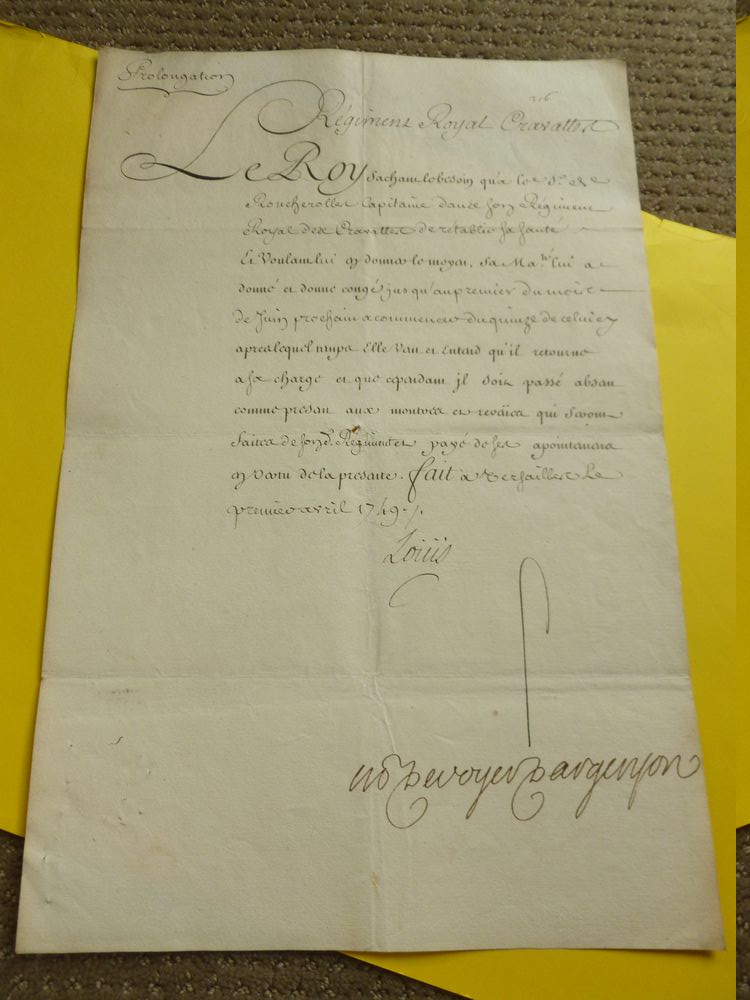 Prolongation
Régiment Royal Cravattes
Le Roy sachant le besoin qu'a le S.r de
Roncherolles Capitaine dans son Régiment
Royal des Cravattes de rétablir sa santé
Et Voulant lui en donner le moyen, Sa Ma.té lui a
donné et donne congé jusqu'au premier du mois
de Juin prochain a commencer du quinze de celui cy
apres lequel temps Elle Veut et Entend qu'il retourne
a sa charge et que cependant il soit passé absent
comme present aux montres et reveües qui seront
faites de son d. Régiment et payé de ses apointemens
en vertu de la presente. fait a Versailles Le
premier avril 1749./.
Louis
M D Devoyer Dargenson